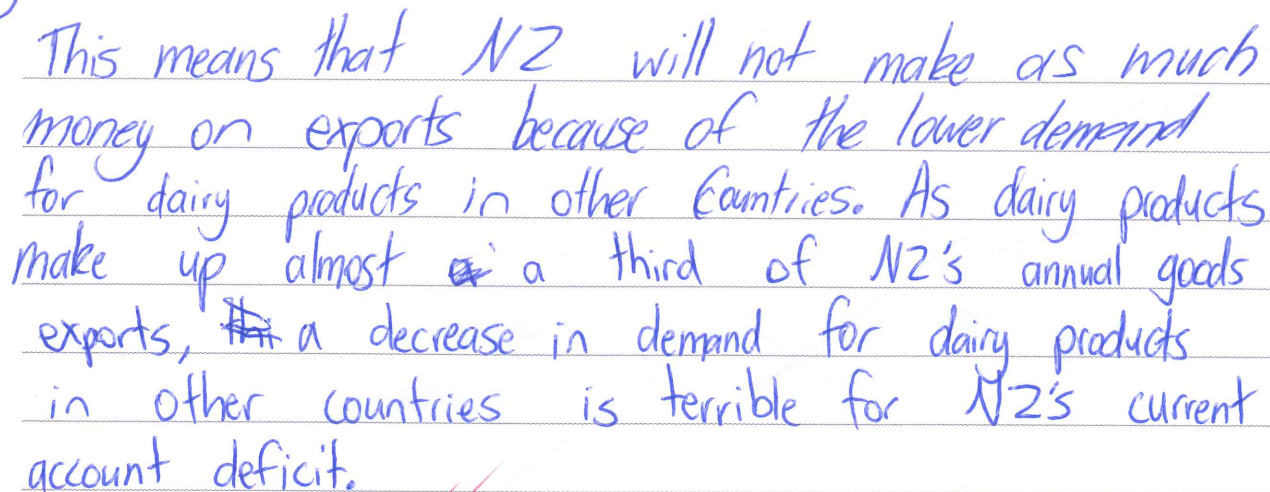 This means that NZ will not make as much
money on exports because of the lower demand
for dairy products in other Countries. As dairy products
make up almost a third of NZ's annual goods
exports, a decrease in demand for dairy products
in other countries is terrible for NZ's current
account deficit.